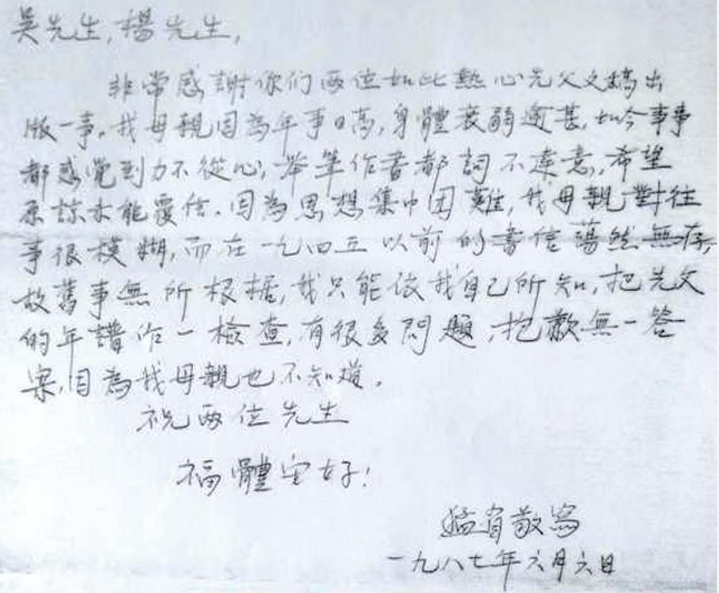 吴先生,楊先生,
非常感謝你们两位如此熱心先父文稿出
版一事。我母親因為年事日高,身體衰弱逾甚,如今事事
都感覺到力不從心,举筆作書都詞不達意,希望
原諒未能覆信。因為思想集中困難,我母親對往
事很模糊,而在一九四五以前的書信蕩然無存,
故舊事無所根据,我只能依我自己所知,把先父
的年譜作一檢查,有很多問題,抱歉無一答
案,因為我母親也不知道。
祝两位先生
福體安好!
敬寫
一九八七年六月六日